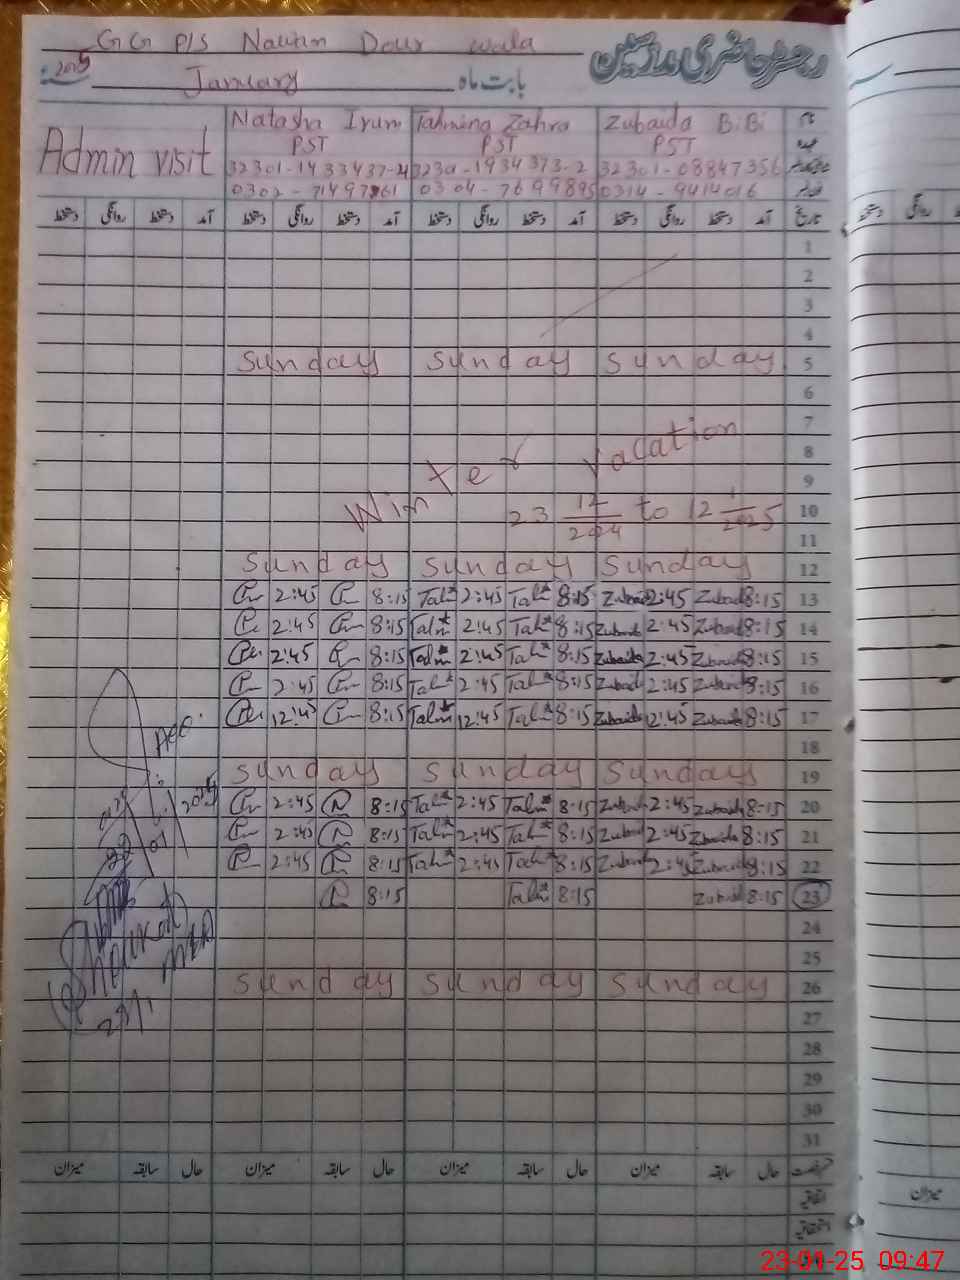 GG P/S Nawan Dour wala
رجسٹر حاضری مدرسین
2025 January بابت ماہ
Admin visit
Natasha Irum Tahmina Zahra Zubaida BiBi نام
PST PST PST عہدہ
32301-1433437-4 3230-1934373-2 32301-08847356
0302-7149761 0304-7699895 0314-9414016
دستخط روانگی دستخط آمد دستخط روانگی دستخط آمد دستخط روانگی دستخط آمد دستخط روانگی دستخط آمد تاریخ
1
2
3
4
Sunday Sunday Sunday 5
6
7
Winter Vacation 8
9
23 12/2024 to 12 1/2025 10
11
Sunday Sunday Sunday 12
2:45 8:15 Tah 2:45 Tah 8:15 Zubaida 2:45 Zubaida 8:15 13
2:45 8:15 Tah 2:45 Tah 8:15 Zubaida 2:45 Zubaida 8:15 14
2:45 8:15 Tah 2:45 Tah 8:15 Zubaida 2:45 Zubaida 8:15 15
2:45 8:15 Tah 2:45 Tah 8:15 Zubaida 2:45 Zubaida 8:15 16
12:45 8:15 Tah 12:45 Tah 8:15 Zubaida 12:45 Zubaida 8:15 17
18
Sunday Sunday Sunday 19
2:45 8:15 Tah 2:45 Tah 8:15 Zubaida 2:45 Zubaida 8:15 20
2:45 8:15 Tah 2:45 Tah 8:15 Zubaida 2:45 Zubaida 8:15 21
2:45 8:15 Tah 2:45 Tah 8:15 Zubaida 2:45 Zubaida 8:15 22
8:15 Tah 8:15 Zubaida 8:15 23
24
25
Sunday Sunday Sunday 26
27
28
29
30
31
میزان سابقہ حال میزان سابقہ حال میزان سابقہ حال میزان سابقہ حال
اتفاقیہ
استحقاقیہ
میزان
23-01-25 09:47